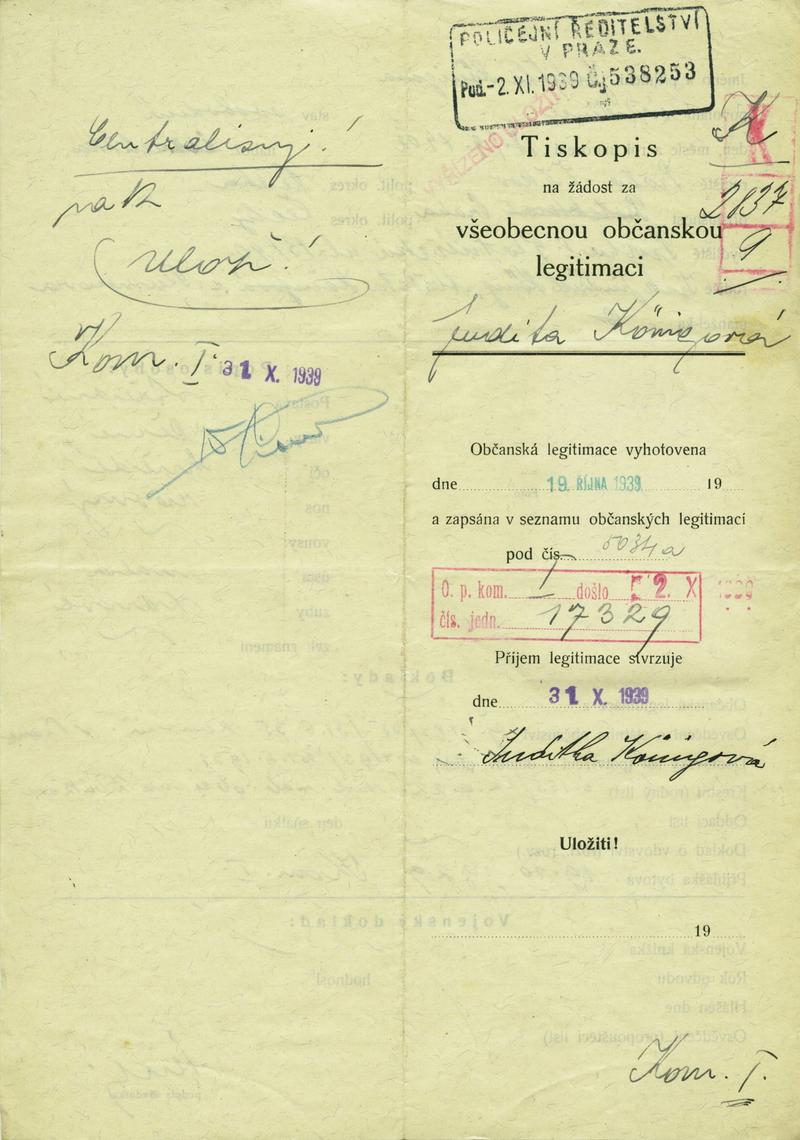 Centralisuj!
pak
Ulož!
Kom. I. 31 X. 1939
POLICEJNÍ ŘEDITELSTVÍ
V PRAZE.
Pod.-2. XI. 1939 Čj 538253
K
Tiskopis
na žádost za
2137
všeobecnou občanskou
9
legitimaci
Judita Königová
Občanská legitimace vyhotovena
dne 19. ŘÍJNA 1939 19
a zapsána v seznamu občanských legitimací
pod čís. 5034a
O. p. kom. I došlo 2. X 1939
čís. jedn. 17329
Příjem legitimace stvrzuje
dne 31 X. 1939
Juditha Königová
Uložiti!
19
Kom. I.